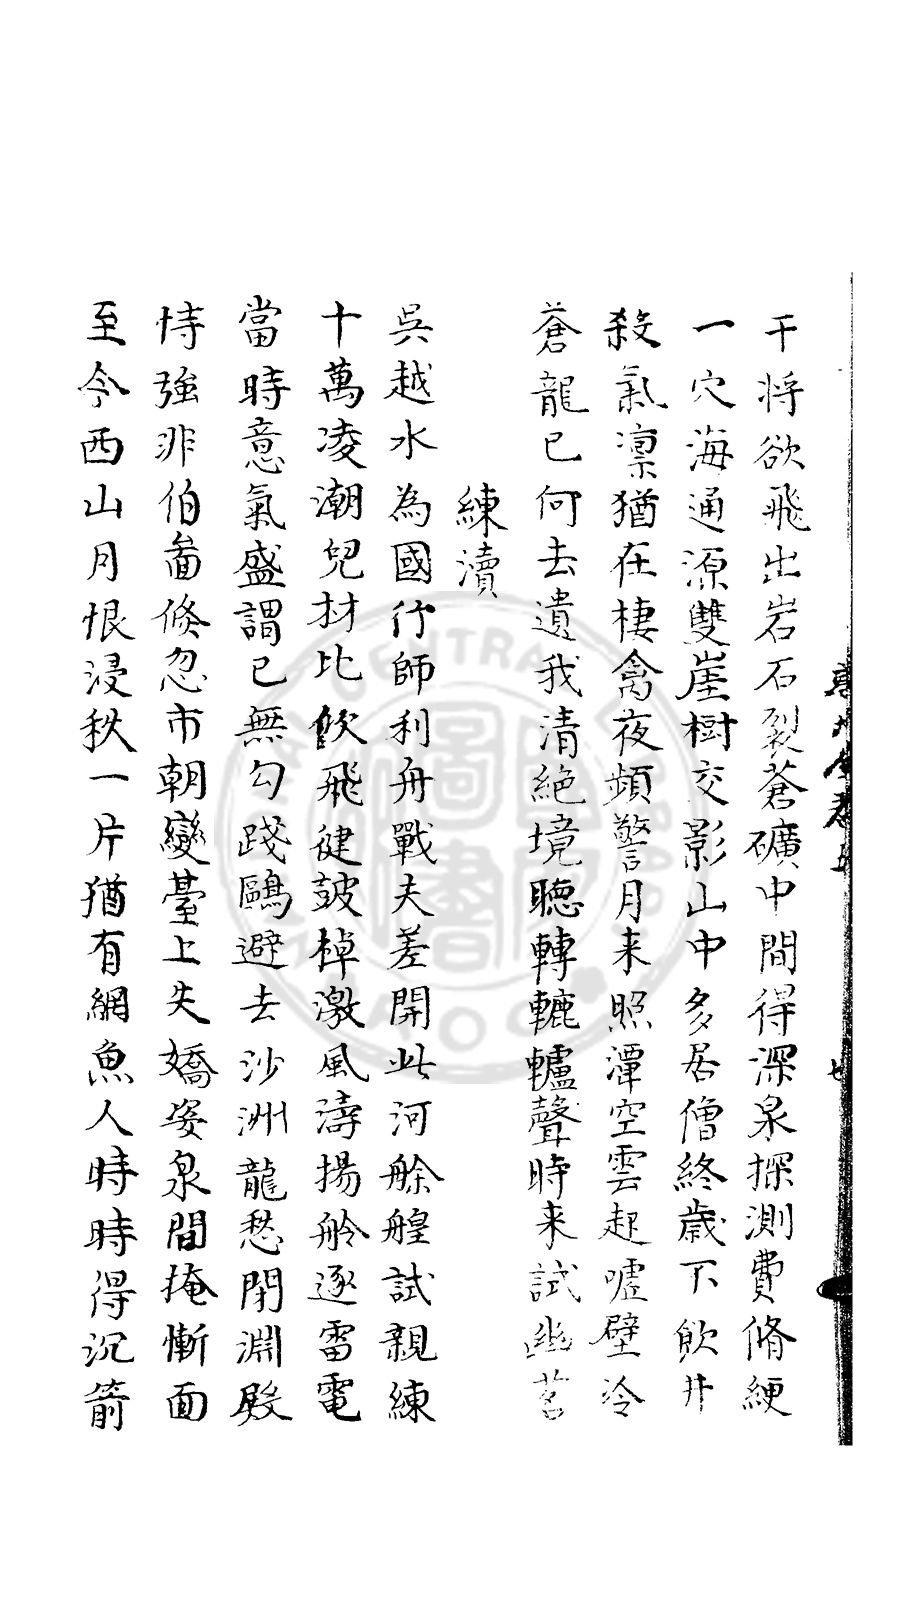 干将欲飛出岩石裂蒼礦中間得深泉探測費脩綆
一穴海通源雙崖樹交影山中多居僧終歲不飲井
殺氣凛猶在棲禽夜頻警月来照潭空雲起嘘壁冷
蒼龍已何去遺我清絶境聽轉轆轤聲時来試幽茗
練瀆
吳越水為國行師利舟戰夫差開此河艅艎試親練
十萬凌潮兒材比佽飛健鼓棹激風濤揚舲逐雷電
當時意氣盛謂已無勾踐鷗避去沙洲龍愁閉淵殿
恃強非伯啚倏忽市朝變臺上失嬌姿泉間掩慚面
至今西山月恨浸秋一片猶有網魚人時時得沉箭